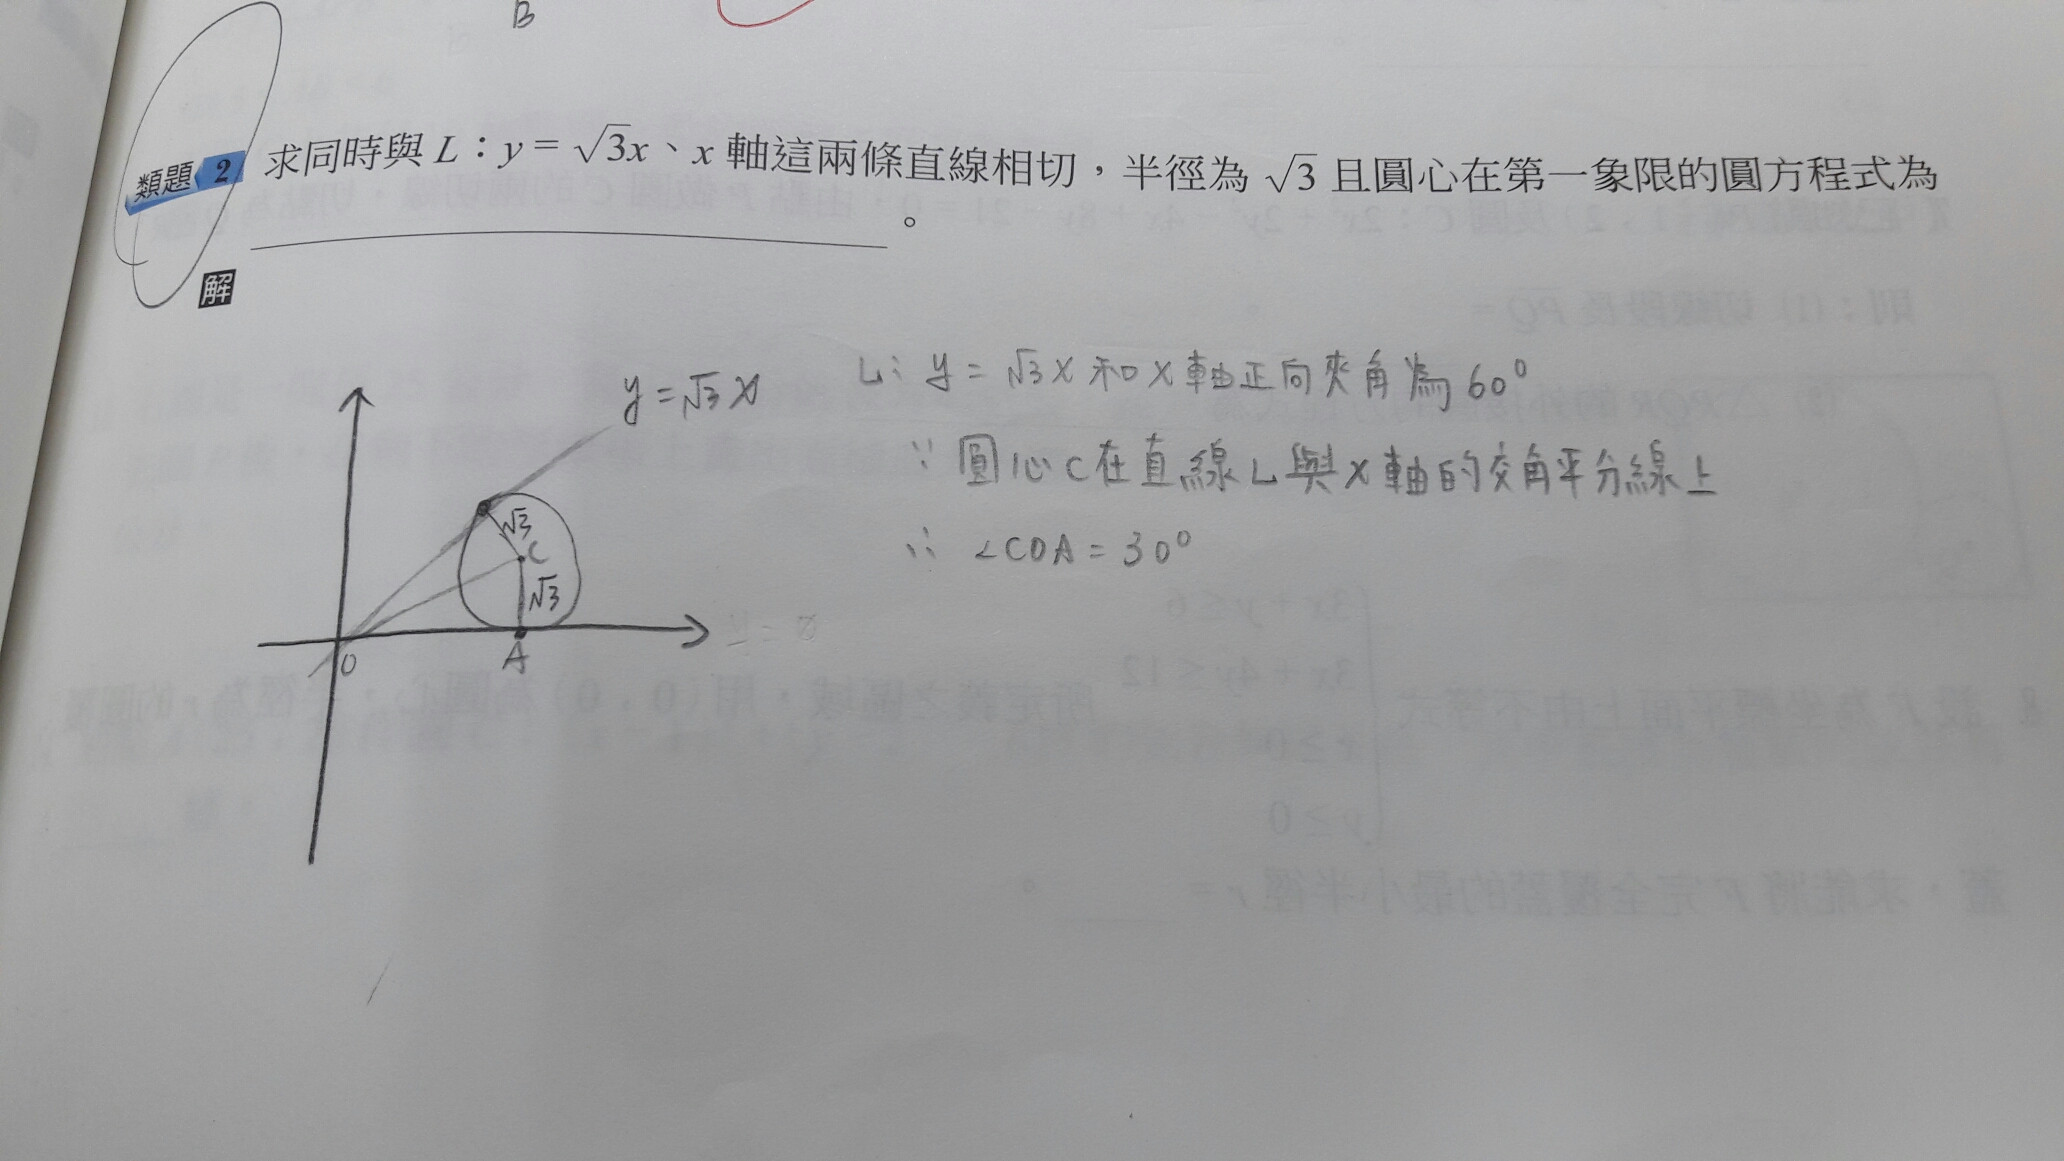 B
類題2 求同時與 L：y = √3x、x 軸這兩條直線相切，半徑為 √3 且圓心在第一象限的圓方程式為
。
解
y = √3 x
L: y = √3 x 和 x 軸正向夾角為 60°
∵ 圓心 C 在直線 L 與 x 軸的交角平分線上
∴ ∠COA = 30°
√3
C
√3
O
A